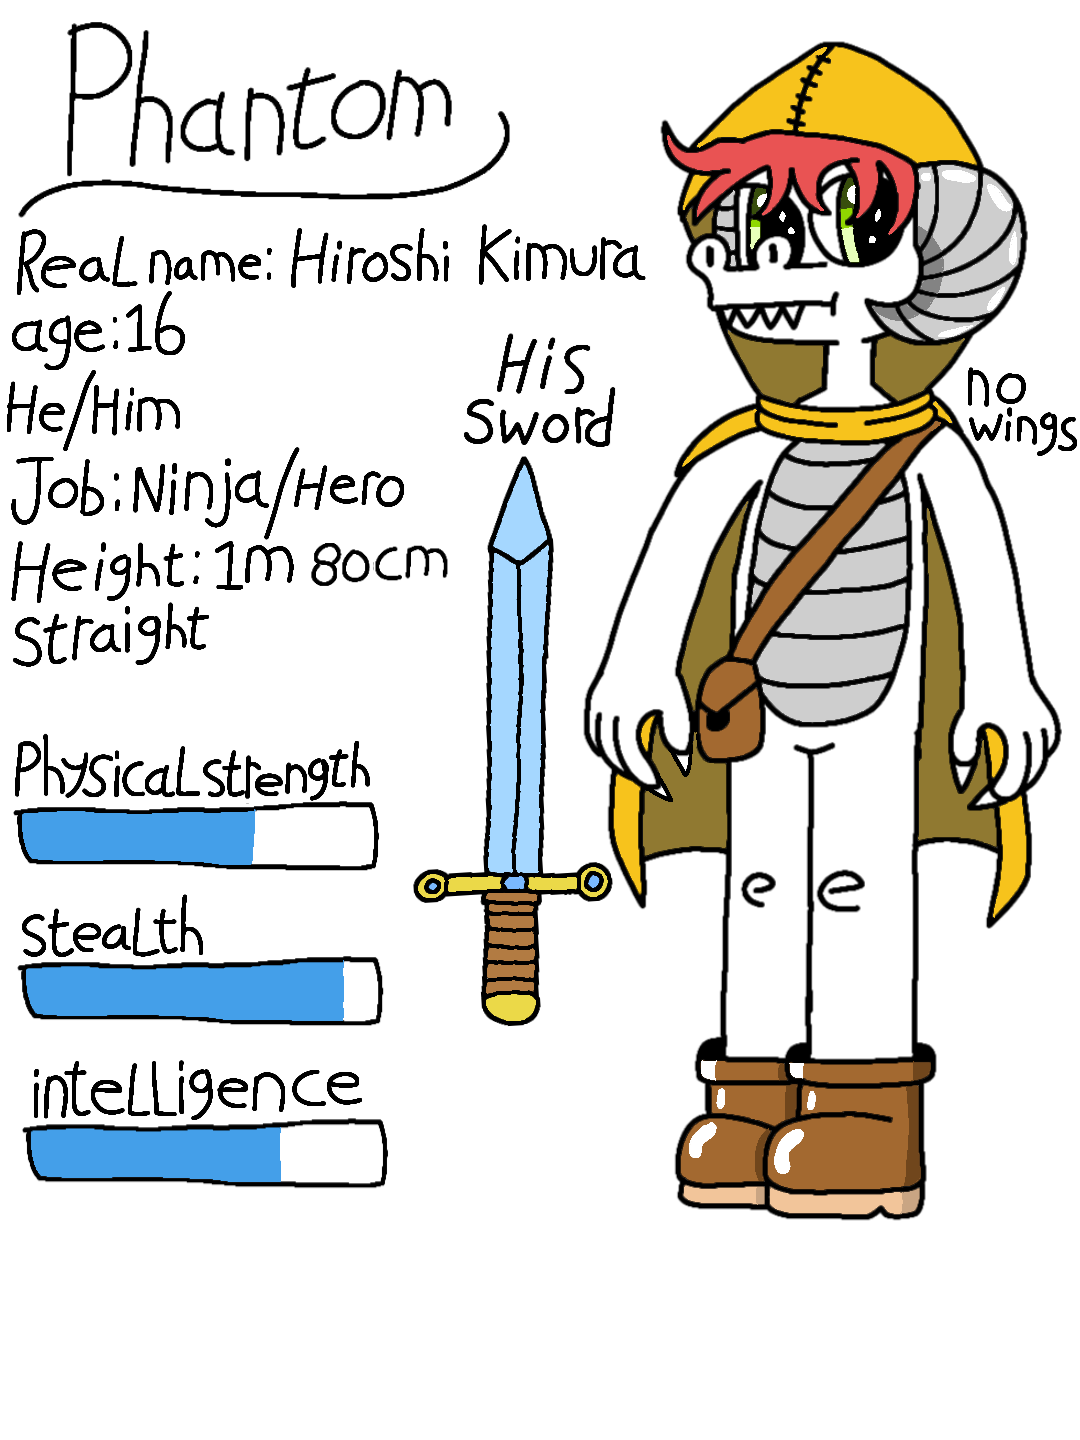 Phantom
Real name: Hiroshi Kimura
age:16
He/Him
Job: Ninja/Hero
Height: 1m 80cm
Straight
Physical strength
Stealth
intelligence
His
Sword
no
wings